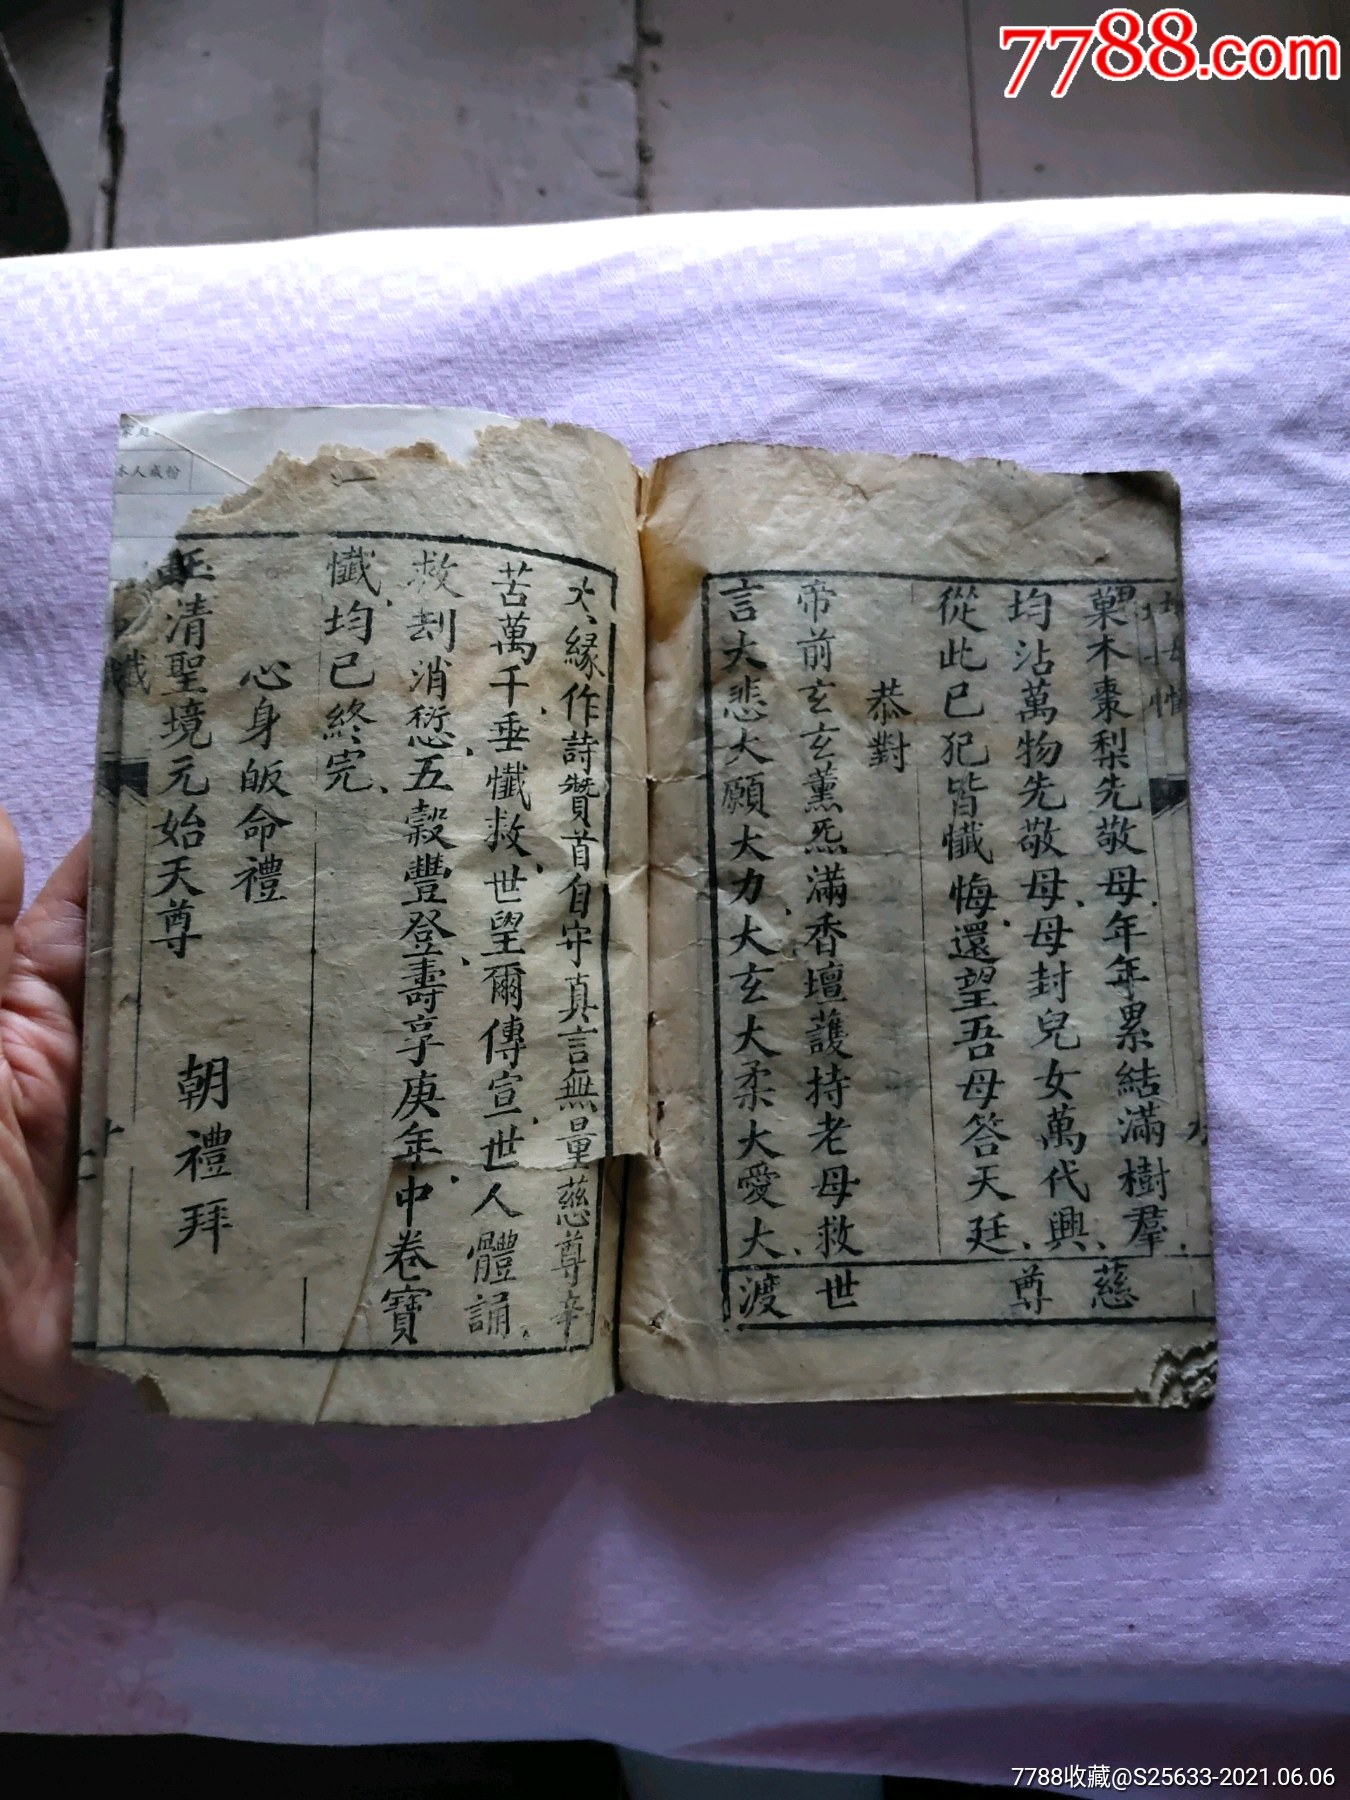 7788.com
本人成份
菓木棗梨先敬母年年累結滿樹羣慈
均沾萬物先敬母母封兒女萬代興尊
從此已犯皆懺悔還望吾母答天廷
恭對
帝前玄玄薰炁滿香壇護持老母救世
言大悲大願大力大玄大柔大愛大渡
大緣作詩贊首自守真言無量慈尊辛
苦萬千垂懺救世望爾傳宣世人體誦
救刼消愆五穀豐登壽享庚年中卷寶
懺均已終完
心身皈命禮
玉清聖境元始天尊 朝禮拜
懺
7788收藏@S25633-2021.06.06